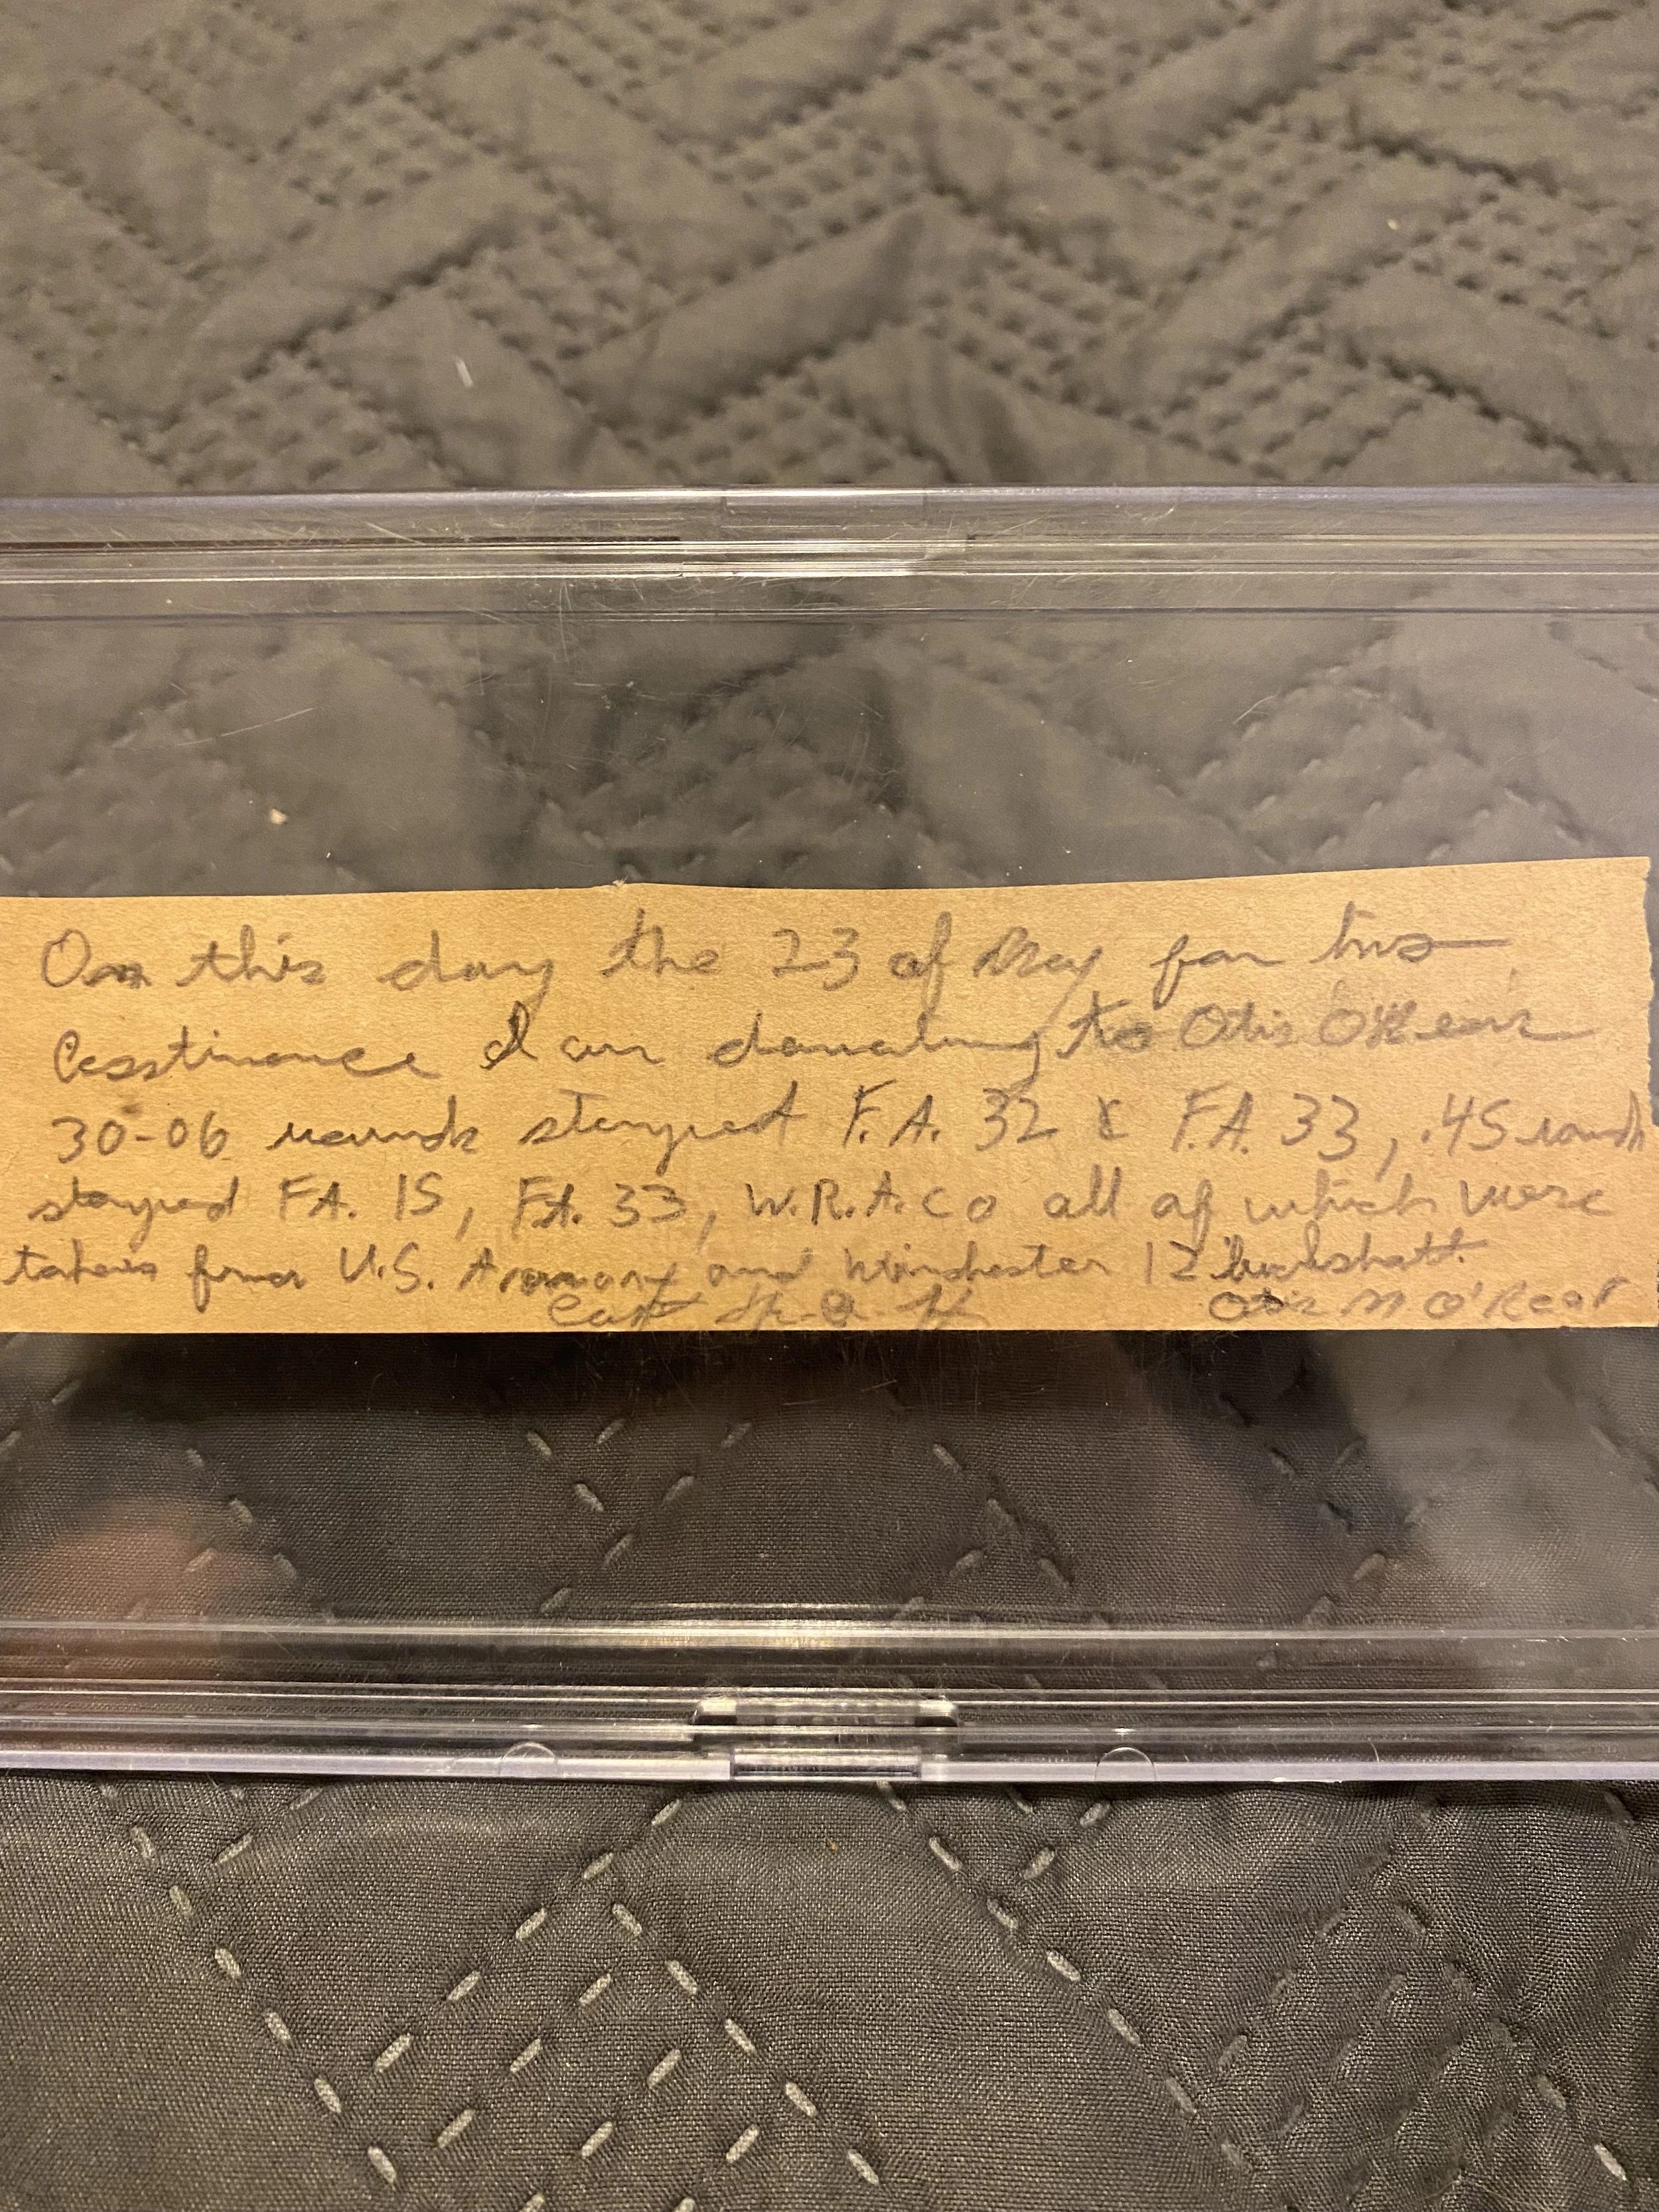 On this day the 23 of May for his
I am donating to Otis O'Rear
30-06 rounds stamped F.A. 32 & F.A. 33, .45 rounds
stamped F.A. 15, F.A. 33, W.R.A.Co all of which were
taken from U.S. and Winchester 12 buckshott.
Otis M O'Rear